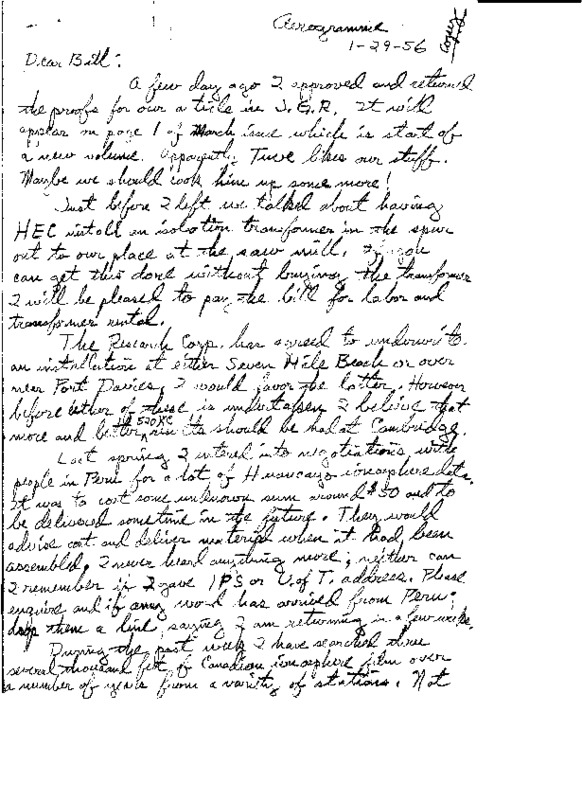 Aerogramme
copy
1-29-56
Dear Bill:
A few day ago I approved and returned
the proofs for our aticle in J.G.R. It will
appear on page 1 of March issue which is start of
a new volume. Apparently Tuve likes our stuff.
Maybe we should cook him up some more!
Just before I left we talked about having
HEC install an isolation transformer in the spur
out to our place at the saw mill. If you
can get this done without buying the transformer
I will be pleased to pay the bill for labor and
transformer rental.
The Research Corp. has agreed to underwrite
an installation at either Seven Mile Beach or over
near Port Davies, I would favor the latter. However
before either of these is undertaken I believe that
more and better 520 KC results should be had at Cambridge.
Last spring I entered into negotiations with
people in Peru for a lot of Huancayo ionosphere data.
It was to cost some unknown sum around $50 and to
be delivered sometime in the future. They would
advise cost and deliver material when it had been
assembled. I never heard anything more; neither can
I remember if I gave IPS or U. of T. address. Please
enquire and if any word has arrived from Peru;
drop them a line, saying I am returning in a few weeks.
During the past week I have searched thru
several thousand feet of Canadian ionosphere film over
a number of years from a variety of stations. Not